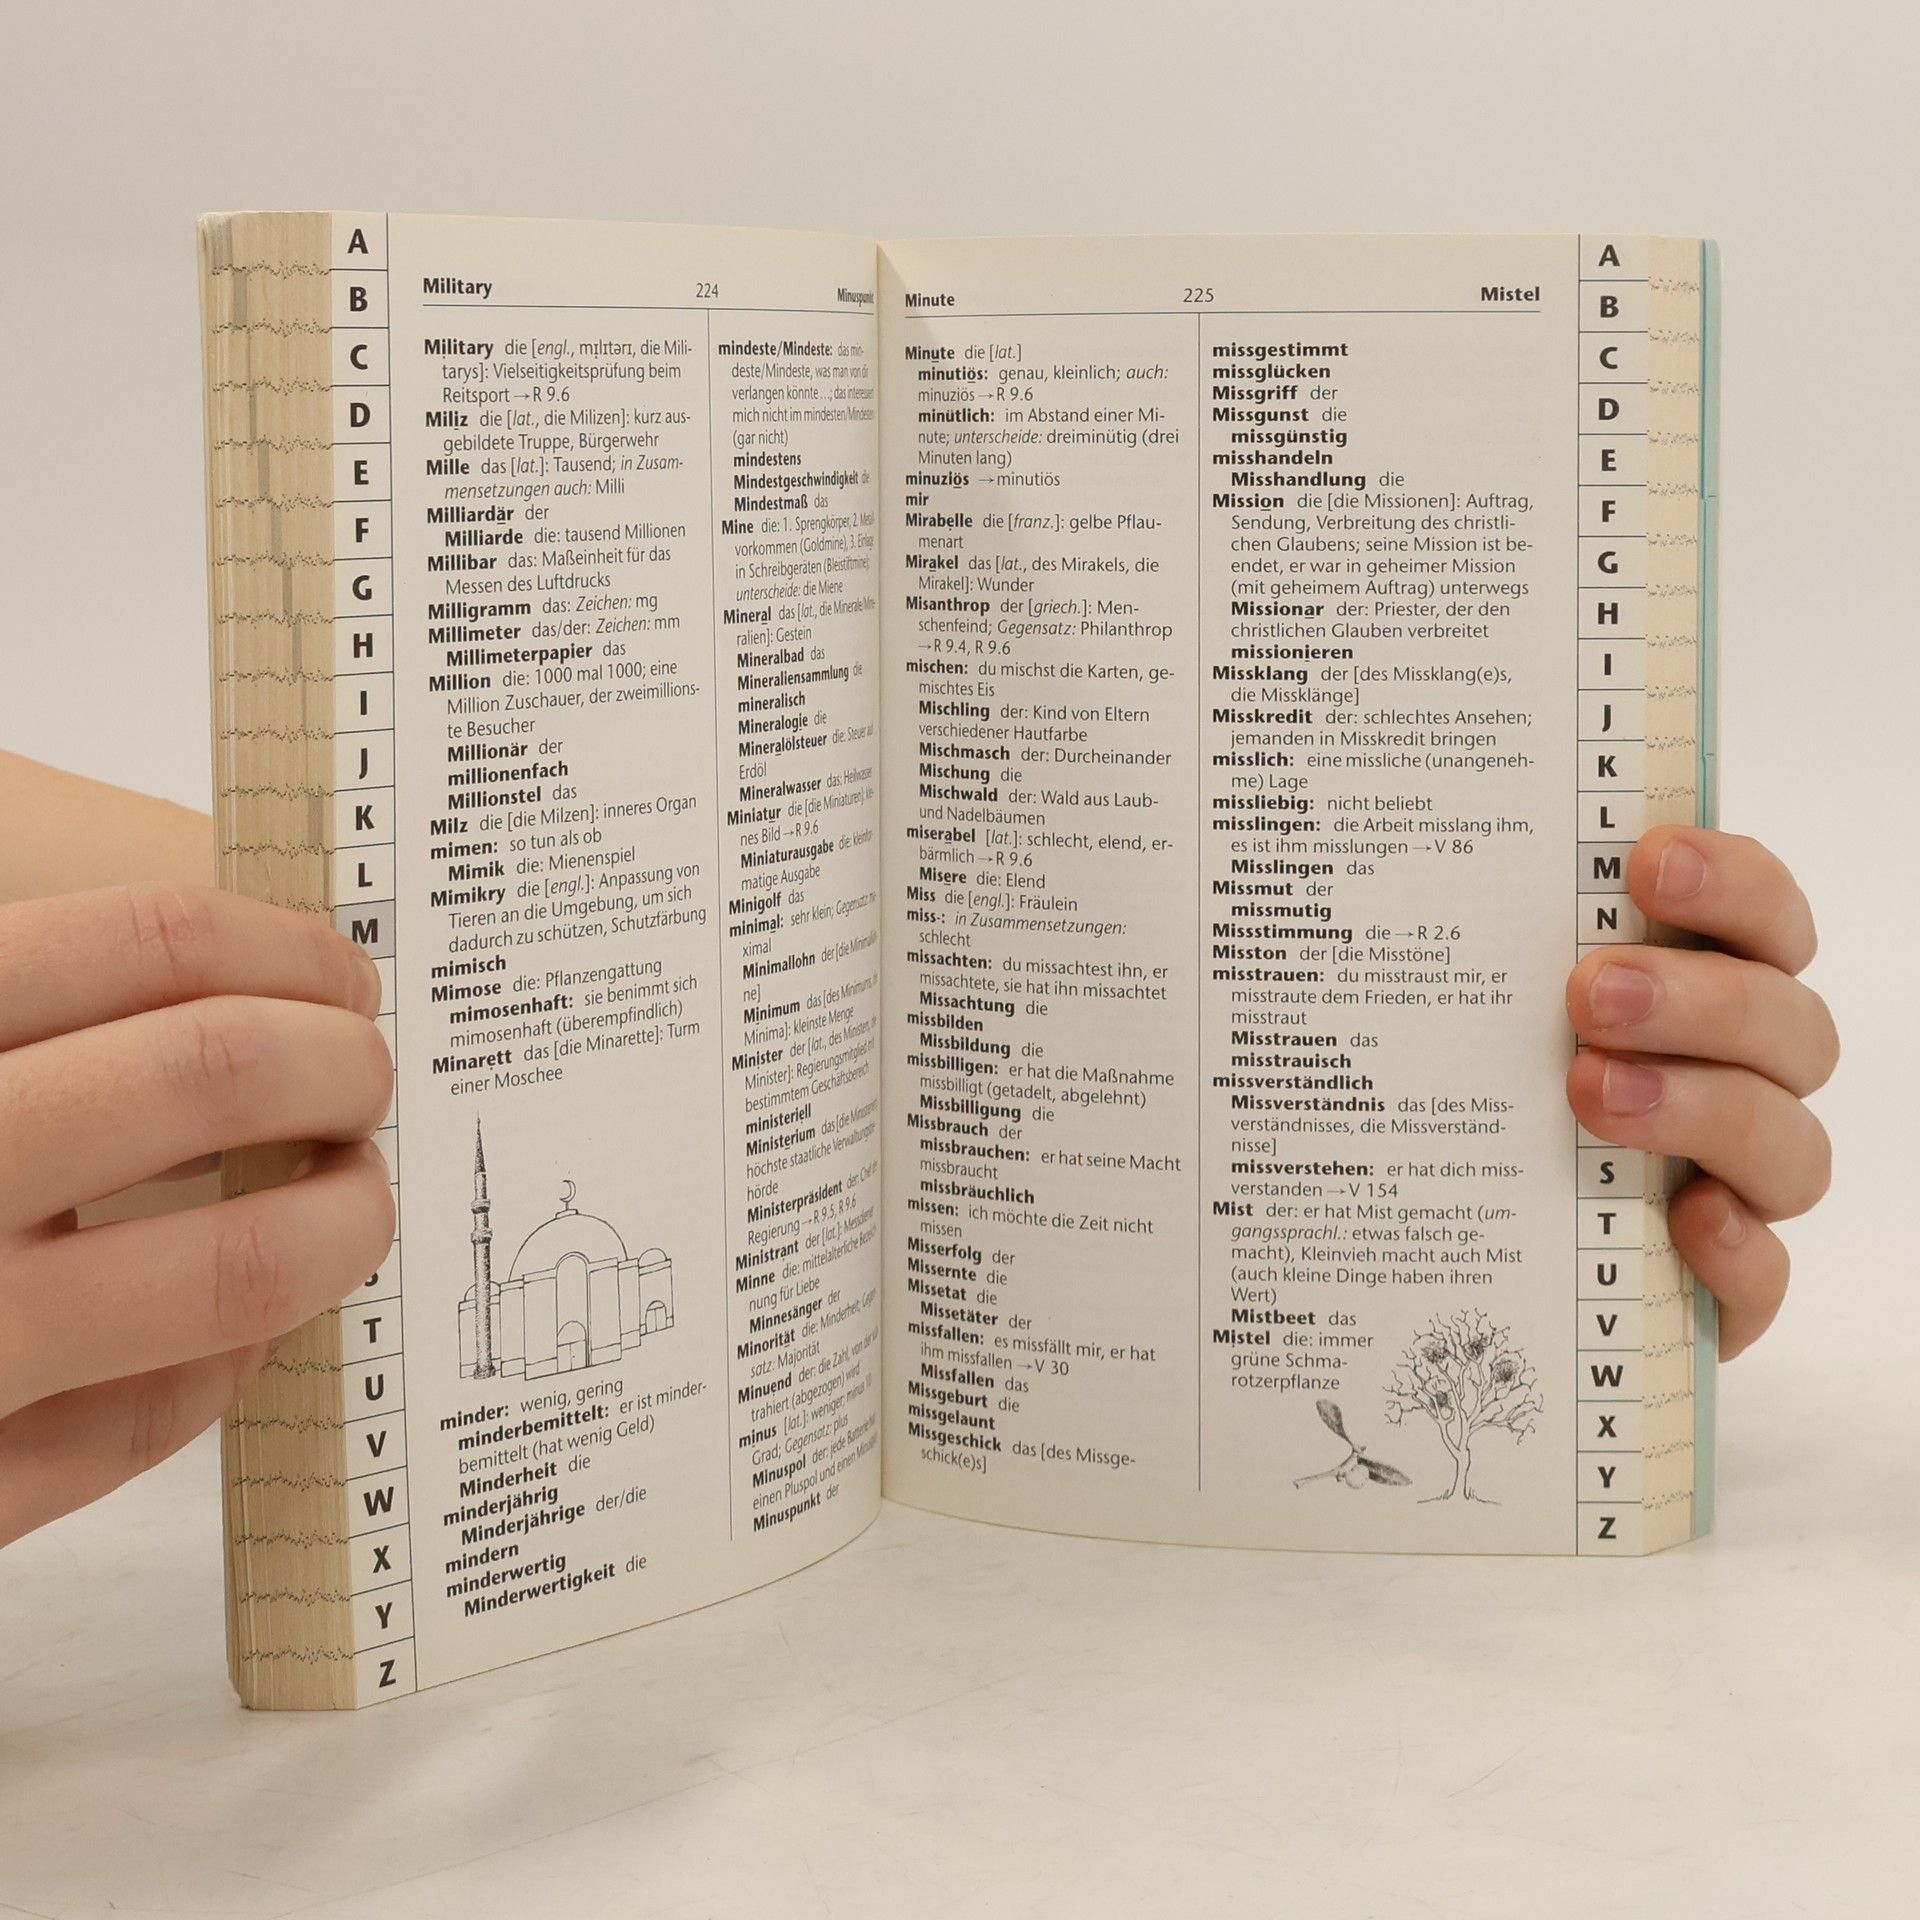 A
B
C
D
E
F
G
H
I
J
K
L
M
T
U
V
W
X
Y
Z
Military 224 Minuspunkt
Military die [engl., mɪlɪtərɪ, die Mili-
tarys]: Vielseitigkeitsprüfung beim
Reitsport → R 9.6
Miliz die [lat., die Milizen]: kurz aus-
gebildete Truppe, Bürgerwehr
Mille das [lat.]: Tausend; in Zusam-
mensetzungen auch: Milli
Milliardär der
Milliarde die: tausend Millionen
Millibar das: Maßeinheit für das
Messen des Luftdrucks
Milligramm das: Zeichen: mg
Millimeter das/der: Zeichen: mm
Millimeterpapier das
Million die: 1000 mal 1000; eine
Million Zuschauer, der zweimillions-
te Besucher
Millionär der
millionenfach
Millionstel das
Milz die [die Milzen]: inneres Organ
mimen: so tun als ob
Mimik die: Mienenspiel
Mimikry die [engl.]: Anpassung von
Tieren an die Umgebung, um sich
dadurch zu schützen, Schutzfärbung
mimisch
Mimose die: Pflanzengattung
mimosenhaft: sie benimmt sich
mimosenhaft (überempfindlich)
Minarett das [die Minarette]: Turm
einer Moschee
minder: wenig, gering
minderbemittelt: er ist minder-
bemittelt (hat wenig Geld)
Minderheit die
minderjährig
Minderjährige der/die
mindern
minderwertig
Minderwertigkeit die
mindeste/Mindeste: das min-
deste/Mindeste, was man von dir
verlangen könnte ...; das interessiert
mich nicht im mindesten/Mindesten
(gar nicht)
mindestens
Mindestgeschwindigkeit die
Mindestmaß das
Mine die: 1. Sprengkörper, 2. Metall-
vorkommen (Goldmine), 3. Einlage
in Schreibgeräten (Bleistiftmine);
unterscheide: die Miene
Mineral das [lat., die Minerale/Mine-
ralien]: Gestein
Mineralbad das
Mineraliensammlung die
mineralisch
Mineralogie die
Mineralölsteuer die: Steuer auf
Erdöl
Mineralwasser das: Heilwasser
Miniatur die [die Miniaturen]: klei-
nes Bild → R 9.6
Miniaturausgabe die: kleinfor-
matige Ausgabe
Minigolf das
minimal: sehr klein; Gegensatz: ma-
ximal
Minimallohn der [die Minimallöh-
ne]
Minimum das [des Minimums, die
Minima]: kleinste Menge
Minister der [lat., des Ministers, die
Minister]: Regierungsmitglied mit
bestimmtem Geschäftsbereich
ministeriell
Ministerium das [die Ministerien]:
höchste staatliche Verwaltungsbe-
hörde
Ministerpräsident der: Chef der
Regierung → R 9.5, R 9.6
Ministrant der [lat.]: Messdiener
Minne die: mittelalterliche Bezeich-
nung für Liebe
Minnesänger der
Minorität die: Minderheit; Gegen-
satz: Majorität
Minuend der: die Zahl, von der
trahiert (abgezogen) wird
minus [lat.]: weniger; minus 10
Grad; Gegensatz: plus
Minuspol der: jede Batterie hat
einen Pluspol und einen Minuspol
Minuspunkt der
Minute 225 Mistel
Minute die [lat.]
minutiös: genau, kleinlich; auch:
minuziös → R 9.6
minütlich: im Abstand einer Mi-
nute; unterscheide: dreiminütig (drei
Minuten lang)
minuziös → minutiös
mir
Mirabelle die [franz.]: gelbe Pflau-
menart
Mirakel das [lat., des Mirakels, die
Mirakel]: Wunder
Misanthrop der [griech.]: Men-
schenfeind; Gegensatz: Philanthrop
→ R 9.4, R 9.6
mischen: du mischst die Karten, ge-
mischtes Eis
Mischling der: Kind von Eltern
verschiedener Hautfarbe
Mischmasch der: Durcheinander
Mischung die
Mischwald der: Wald aus Laub-
und Nadelbäumen
miserabel [lat.]: schlecht, elend, er-
bärmlich → R 9.6
Misere die: Elend
Miss die [engl.]: Fräulein
miss-: in Zusammensetzungen:
schlecht
missachten: du missachtest ihn, er
missachtete, sie hat ihn missachtet
Missachtung die
missbilden
Missbildung die
missbilligen: er hat die Maßnahme
missbilligt (getadelt, abgelehnt)
Missbilligung die
Missbrauch der
missbrauchen: er hat seine Macht
missbraucht
missbräuchlich
missen: ich möchte die Zeit nicht
missen
Misserfolg der
Missernte die
Missetat die
Missetäter der
missfallen: es missfällt mir, er hat
ihm missfallen → V 30
Missfallen das
Missgeburt die
missgelaunt
Missgeschick das [des Missge-
schick(e)s]
missgestimmt
missglücken
Missgriff der
Missgunst die
missgünstig
misshandeln
Misshandlung die
Mission die [die Missionen]: Auftrag,
Sendung, Verbreitung des christli-
chen Glaubens; seine Mission ist be-
endet, er war in geheimer Mission
(mit geheimem Auftrag) unterwegs
Missionar der: Priester, der den
christlichen Glauben verbreitet
missionieren
Missklang der [des Missklang(e)s,
die Missklänge]
Misskredit der: schlechtes Ansehen;
jemanden in Misskredit bringen
misslich: eine missliche (unangeneh-
me) Lage
missliebig: nicht beliebt
misslingen: die Arbeit misslang ihm,
es ist ihm misslungen → V 86
Misslingen das
Missmut der
missmutig
Missstimmung die → R 2.6
Misston der [die Misstöne]
misstrauen: du misstraust mir, er
misstraute dem Frieden, er hat ihr
misstraut
Misstrauen das
misstrauisch
missverständlich
Missverständnis das [des Miss-
verständnisses, die Missverständ-
nisse]
missverstehen: er hat dich miss-
verstanden → V 154
Mist der: er hat Mist gemacht (um-
gangssprachl.: etwas falsch ge-
macht), Kleinvieh macht auch Mist
(auch kleine Dinge haben ihren
Wert)
Mistbeet das
Mistel die: immer
grüne Schma-
rotzerpflanze
A
B
C
D
E
F
G
H
I
J
K
L
M
N
S
T
U
V
W
X
Y
Z